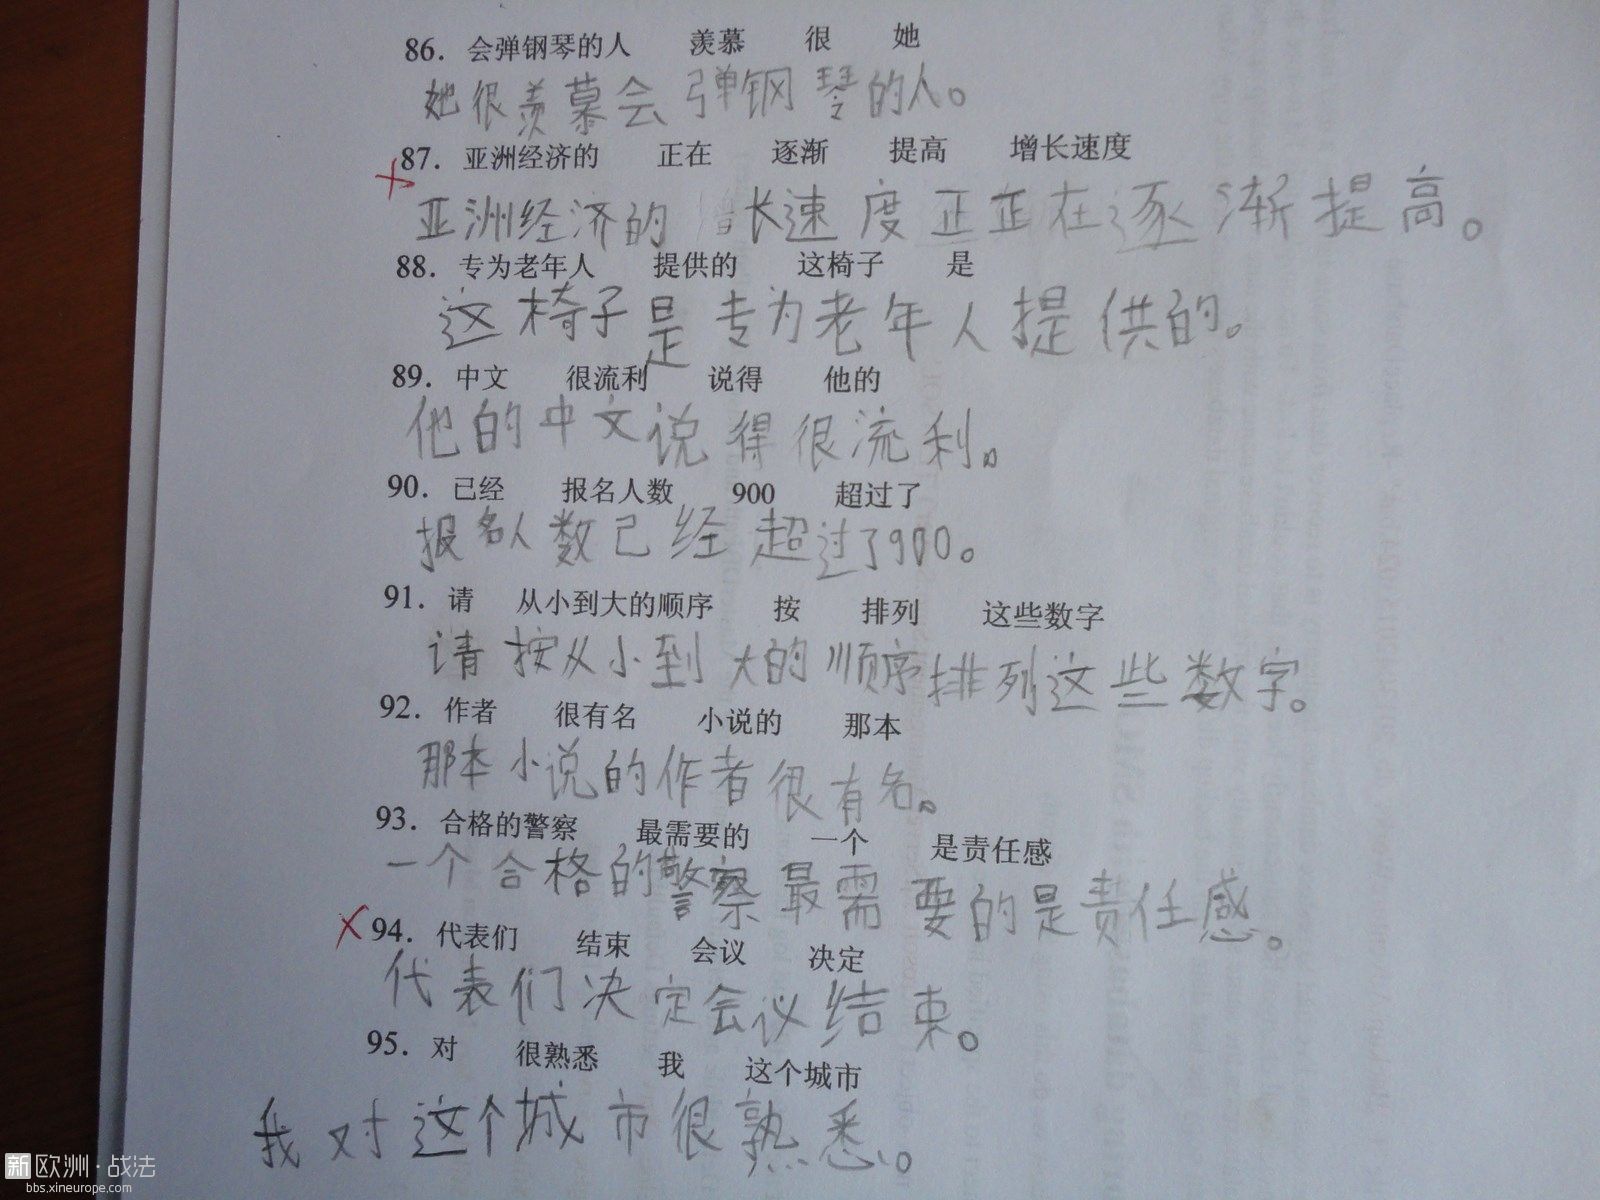 86. 会弹钢琴的人 羡慕 很 她
她很羡慕会弹钢琴的人。
87. 亚洲经济的 正在 逐渐 提高 增长速度
亚洲经济的增长速度正正在逐渐提高。
88. 专为老年人 提供的 这椅子 是
这椅子是专为老年人提供的。
89. 中文 很流利 说得 他的
他的中文说得很流利。
90. 已经 报名人数 900 超过了
报名人数已经超过了900。
91. 请 从小到大的顺序 按 排列 这些数字
请按从小到大的顺序排列这些数字。
92. 作者 很有名 小说的 那本
那本小说的作者很有名。
93. 合格的警察 最需要的 一个 是责任感
一个合格的警察最需要的是责任感。
94. 代表们 结束 会议 决定
代表们决定会议结束。
95. 对 很熟悉 我 这个城市
我对这个城市很熟悉。
新欧洲·战法
bbs.xineurope.com